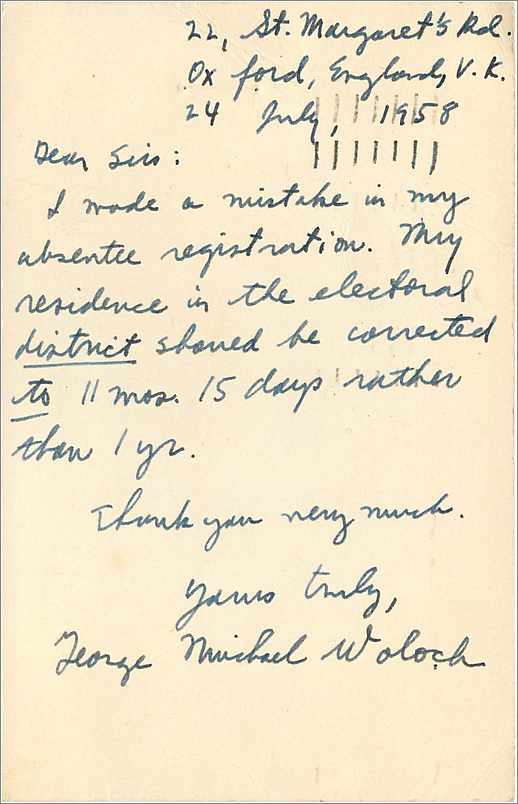 22, St. Margaret's Rd.
Oxford, England, U.K.
24 July, 1958
Dear Sirs:
I made a mistake in my
absentee registration. My
residence in the electoral
district should be corrected
to 11 mos. 15 days rather
than 1 yr.
Thank you very much.
Yours truly,
George Michael Woloch